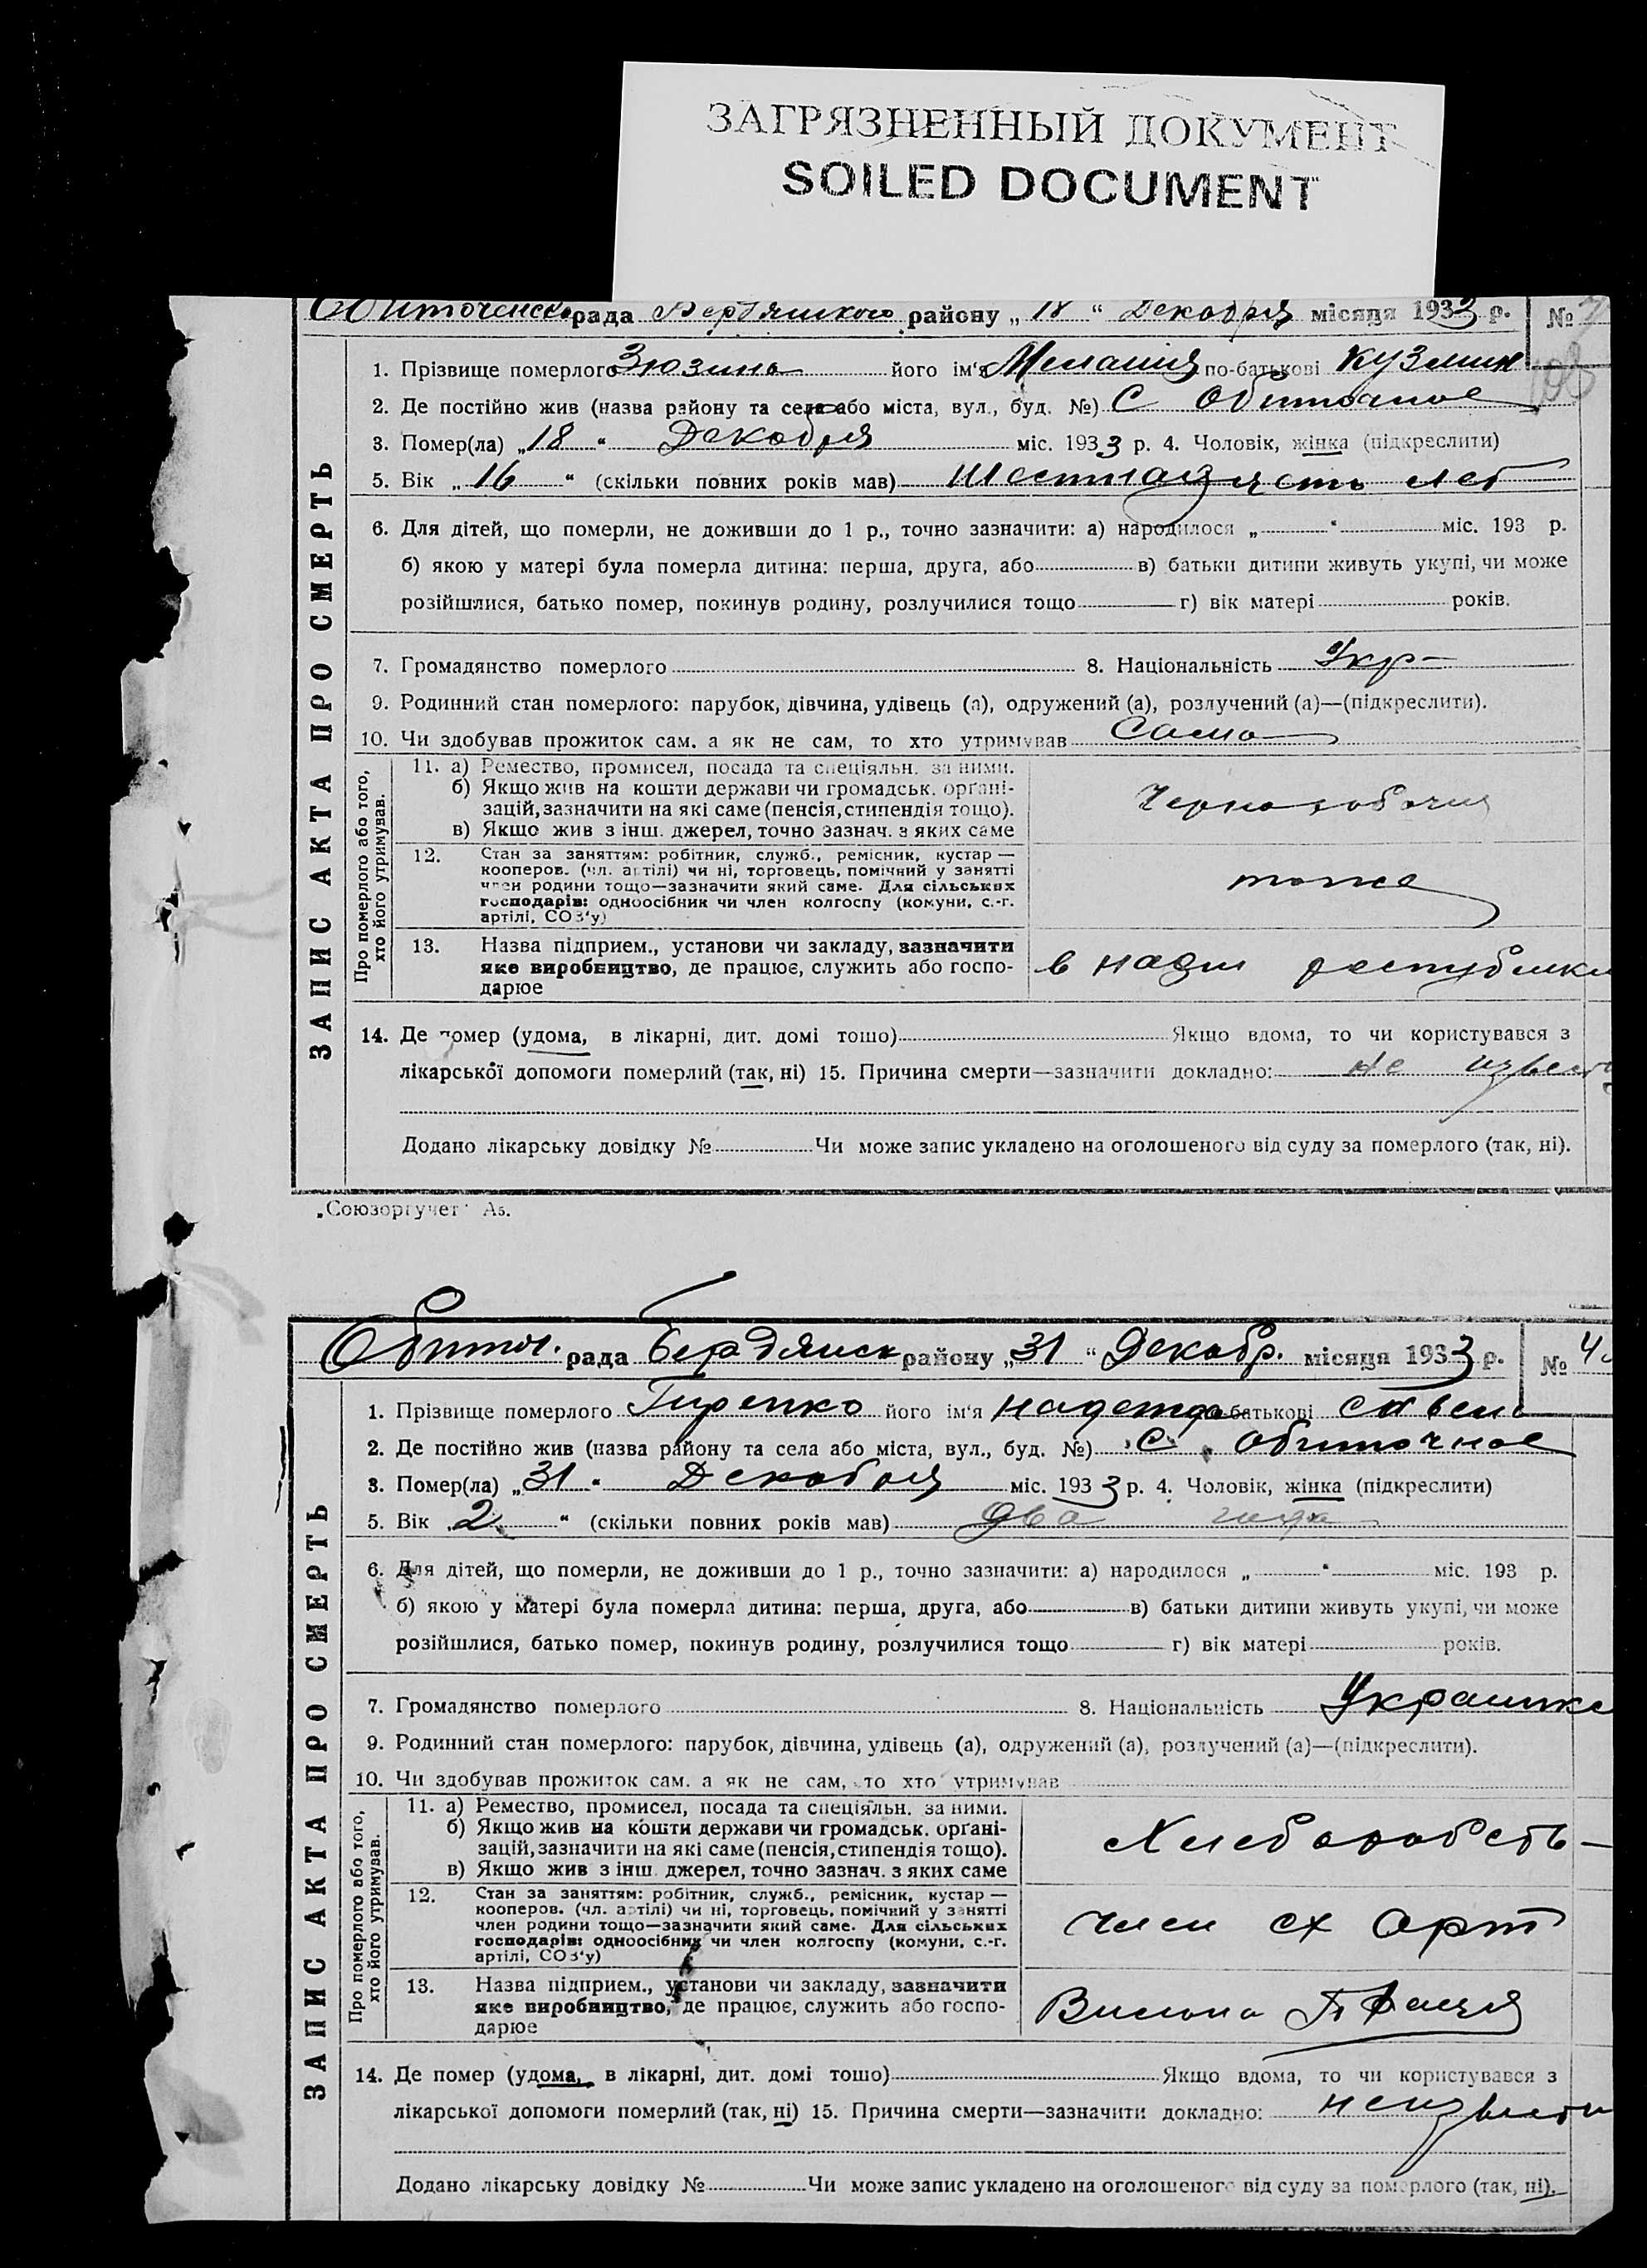 ЗАГРЯЗНЕННЫЙ ДОКУМЕНТ
SOILED DOCUMENT
рада Бердянского району „ 18 “ Декабря місяця 1933 р. №
ЗАПИС АКТА ПРО СМЕРТЬ
1. Прізвище померлого Зюзина його ім‘я Мелания по-батькові Кузмин
108
2. Де постійно жив (назва району та села або міста, вул., буд. №) С Обиточное
3. Помер(ла) „ 18 “ Декабря міс. 1933 р. 4. Чоловік, жінка (підкреслити)
5. Вік „ 16 “ (скільки повних років мав) Шестнадцать лет
6. Для дітей, що померли, не доживши до 1 р., точно зазначити: а) народилося „ “ міс. 193 р.
б) якою у матері була померла дитина: перша, друга, або в) батьки дитини живуть укупі, чи може
розійшлися, батько помер, покинув родину, розлучилися тощо г) вік матері років.
7. Громадянство померлого 8. Національність Укр-
9. Родинний стан померлого: парубок, дівчина, удівець (а), одружений (а), розлучений (а)—(підкреслити).
10. Чи здобував прожиток сам, а як не сам, то хто утримував Сама
Про померлого або того, хто його утримував.
11. а) Ремество, промисел, посада та спеціяльн. за ними.
б) Якщо жив на кошти держави чи громадськ. орґані-
зацій, зазначити на які саме (пенсія, стипендія тощо).
в) Якщо жив з інш. джерел, точно зазнач. з яких саме
Чернорабочая
12. Стан за заняттям: робітник, служб., ремісник, кустар —
кооперов. (чл. артілі) чи ні, торговець, помічний у занятті
член родини тощо—зазначити який саме. Для сільських
господарів: одноосібник чи член колгоспу (комуни, с.-г.
артілі, СОЗ‘у)
тоже
13. Назва підприєм., установи чи закладу, зазначити
яке виробництво, де працює, служить або госпо-
дарює
в
14. Де помер (удома, в лікарні, дит. домі тощо) Якщо вдома, то чи користувався з
лікарської допомоги померлий (так, ні) 15. Причина смерти—зазначити докладно: не извест
Додано лікарську довідку № Чи може запис укладено на оголошеного від суду за померлого (так, ні).
„Союзоргучет“ А5.
Обиточ. рада Бердянск району „ 31 “ Декабр. місяця 1933 р. № 4
ЗАПИС АКТА ПРО СМЕРТЬ
1. Прізвище померлого Гиренко його ім‘я Надежда батькові
2. Де постійно жив (назва району та села або міста, вул., буд. №) С Обиточное
3. Помер(ла) „ 31 “ Декабря міс. 1933 р. 4. Чоловік, жінка (підкреслити)
5. Вік 2 “ (скільки повних років мав) Два года
6. Для дітей, що померли, не доживши до 1 р., точно зазначити: а) народилося „ “ міс. 193 р.
б) якою у матері була померла дитина: перша, друга, або в) батьки дитини живуть укупі, чи може
розійшлися, батько помер, покинув родину, розлучилися тощо г) вік матері років.
7. Громадянство померлого 8. Національність Украинка
9. Родинний стан померлого: парубок, дівчина, удівець (а), одружений (а), розлучений (а)—(підкреслити).
10. Чи здобував прожиток сам, а як не сам, то хто утримував
Про померлого або того, хто його утримував.
11. а) Ремество, промисел, посада та спеціяльн. за ними.
б) Якщо жив на кошти держави чи громадськ. орґані-
зацій, зазначити на які саме (пенсія, стипендія тощо).
в) Якщо жив з інш. джерел, точно зазнач. з яких саме
12. Стан за заняттям: робітник, служб., ремісник, кустар —
кооперов. (чл. артілі) чи ні, торговець, помічний у занятті
член родини тощо—зазначити який саме. Для сільських
господарів: одноосібник чи член колгоспу (комуни, с.-г.
артілі, СОЗ‘у)
член сх Арт
13. Назва підприєм., установи чи закладу, зазначити
яке виробництво, де працює, служить або госпо-
дарює
14. Де помер (удома, в лікарні, дит. домі тощо) Якщо вдома, то чи користувався з
лікарської допомоги померлий (так, ні) 15. Причина смерти—зазначити докладно: неизвестн
Додано лікарську довідку № Чи може запис укладено на оголошеного від суду за померлого (так, ні).